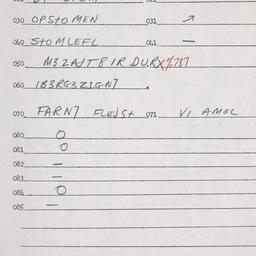 030 OPStOMEN 031 ↗
040 StOMLEFL 041 —
050 M3.2AJT81R DURX%787
060 1B3RG3Z1GN7 .
070 FARN7 FLEJSt 071 V1 AMOL
080 O
081 O
082 —
083 —
084 O
085 —